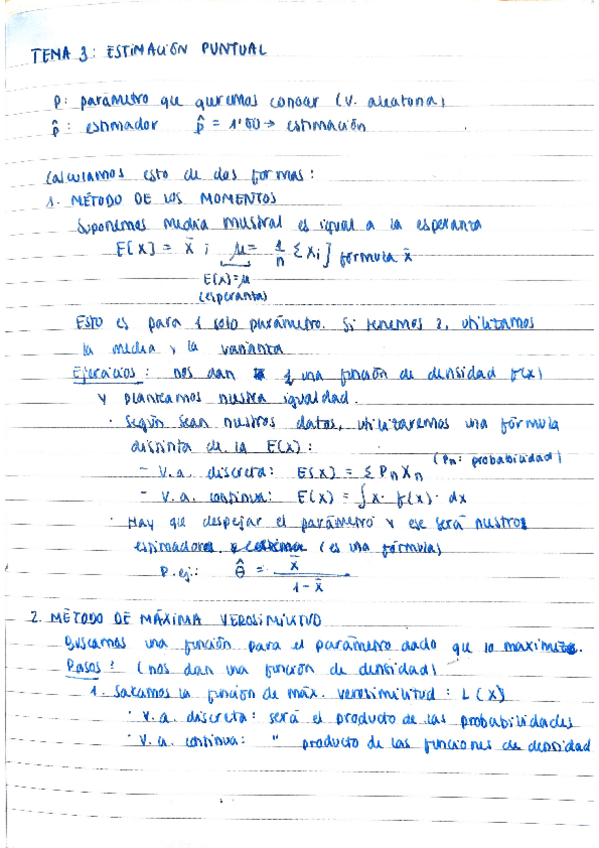 TEMA 3: ESTIMACIÓN PUNTUAL
p: parámetro que queremos conocer (v. aleatoria)
p̂: estimador p̂ = 1'80 → estimación
Calculamos esto de dos formas:
1. MÉTODO DE LOS MOMENTOS
Suponemos media muestral es igual a la esperanza
E[X] = x̄ ; μ = 1/n Σxi] fórmula x̄
E(X)=μ
(esperanza)
Esto es para 1 solo parámetro. Si tenemos 2, utilizamos
la media y la varianza
Ejercicios: nos dan una función de densidad f(x)
y planteamos nuestra igualdad.
· Según sean nuestros datos, utilizaremos una fórmula
distinta de la E(x):
(Pn: probabilidad)
- V.a. discreta: E(x) = Σ Pn Xn
- V.a. continua: E(x) = ∫x · f(x) · dx
· Hay que despejar el parámetro y ese será nuestros
estimadores (es una fórmula)
P.ej.: θ̂ = x̄ / 1 - x̄
2. MÉTODO DE MÁXIMA VEROSIMILITUD
Buscamos una función para el parámetro dado que lo maximize.
Pasos: (nos dan una función de densidad)
1. Sacamos la función de máx. verosimilitud: L(X)
· V.a. discreta: será el producto de las probabilidades
· V.a. continua: " producto de las funciones de densidad